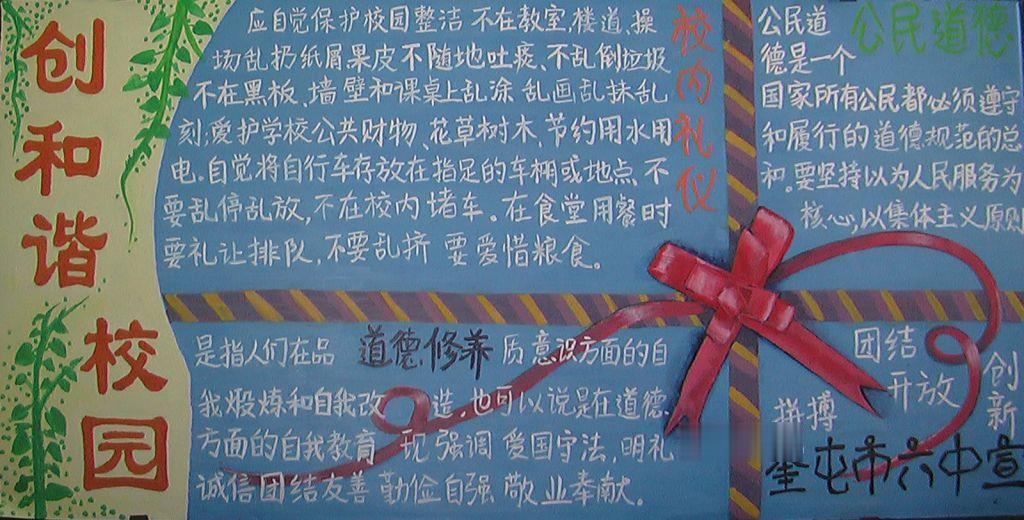 创和谐校园
校内礼仪
应自觉保护校园整洁不在教室,楼道、操
场乱扔纸屑果皮不随地吐痰、不乱倒垃圾
不在黑板、墙壁和课桌上乱涂乱画乱抹乱
刻,爱护学校公共财物、花草树木,节约用水用
电。自觉将自行车存放在指定的车棚或地点不
要乱停乱放,不在校内堵车。在食堂用餐时
要礼让排队,不要乱挤 要爱惜粮食。
公民道德
公民道
德是一个
国家所有公民都必须遵守
和履行的道德规范的总
和。要坚持以为人民服务为
核心,以集体主义原则
道德修养
是指人们在品 质意识方面的自
我煅炼和自我改 造,也可以说是在道德
方面的自我教育 现强调爱国守法,明礼
诚信团结友善勤俭自强 敬业奉献.
团结
开放
拼搏
创新
奎屯市六中宣